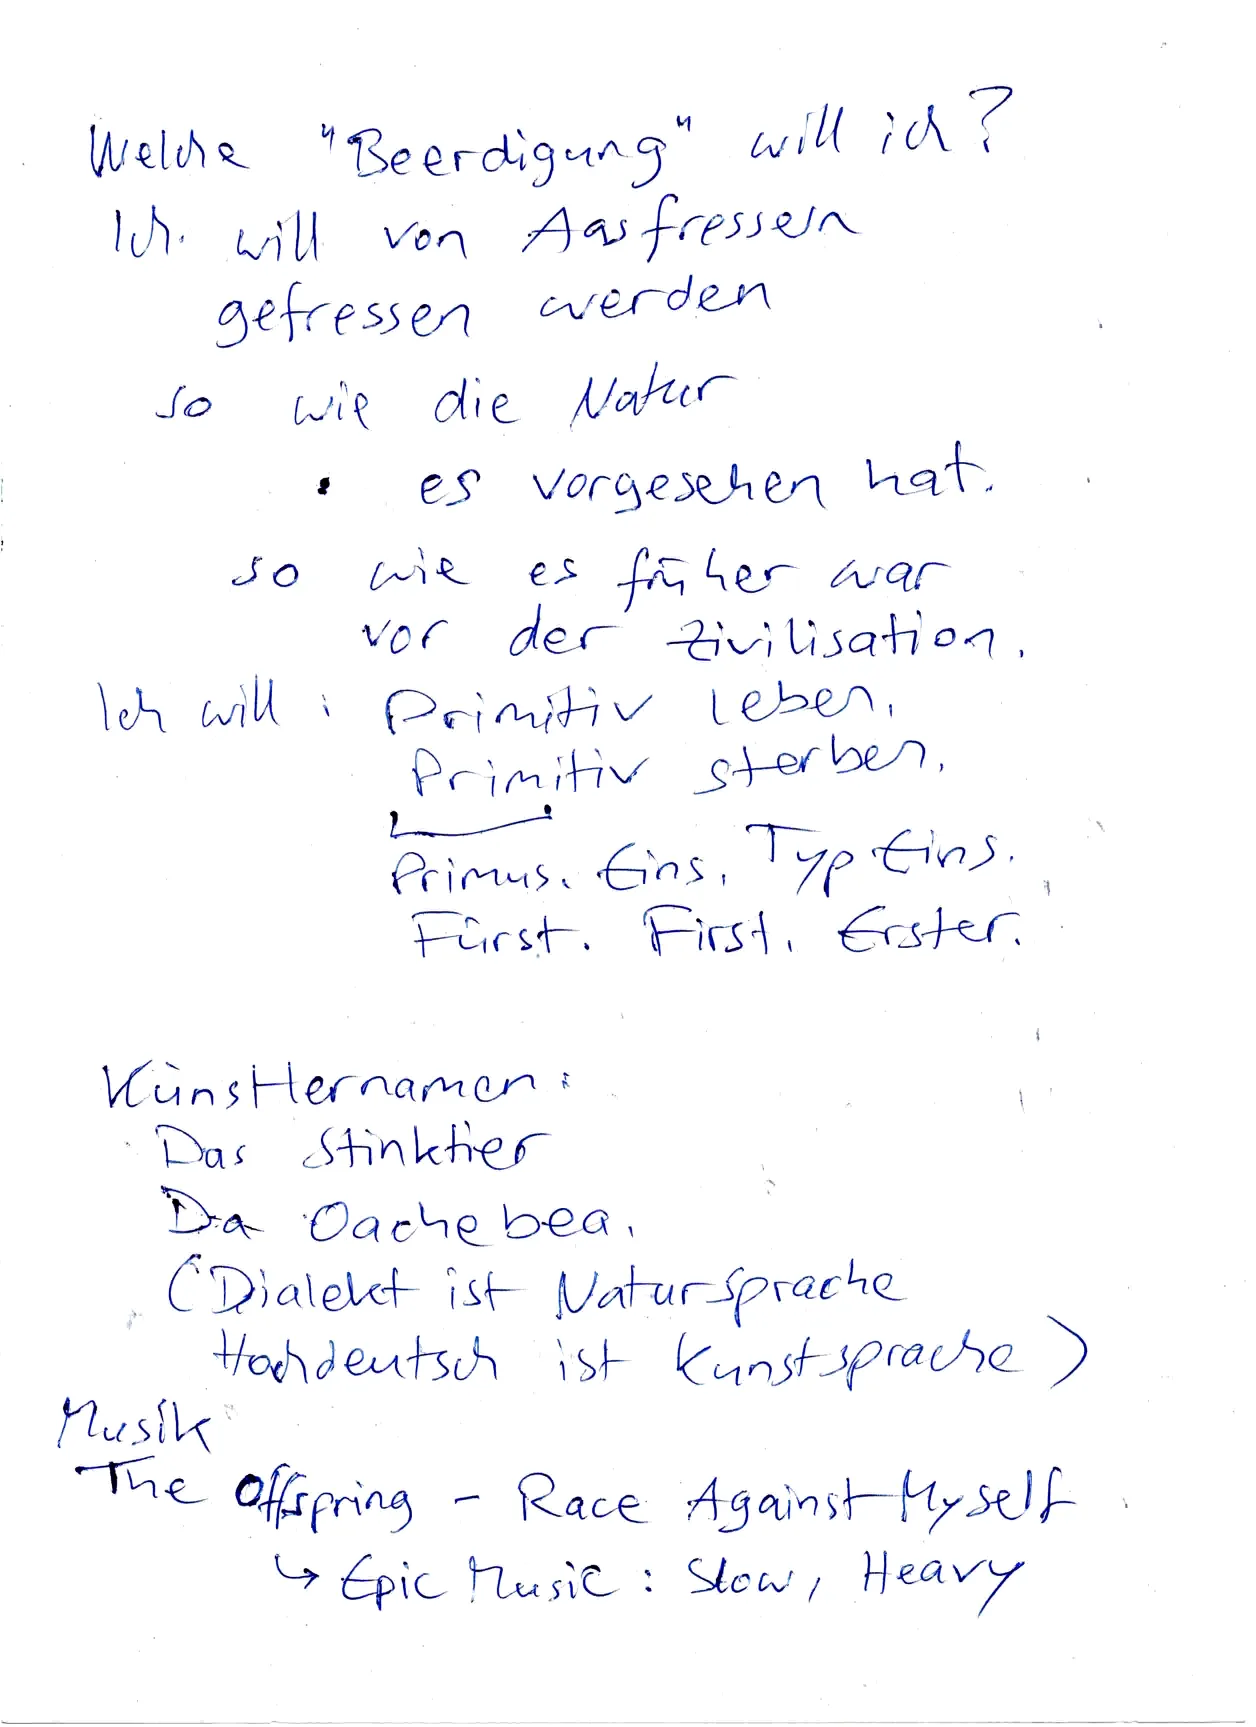 Welche "Beerdigung" will ich?
Ich will von Aasfressern
gefressen werden
so wie die Natur
es vorgesehen hat.
so wie es früher war
vor der Zivilisation.
Ich will: Primitiv leben.
Primitiv sterben.
Primus. Eins. Typ Eins.
Fürst. First. Erster.
Künstlernamen:
Das Stinktier
Da Oachebea.
(Dialekt ist Natursprache
Hochdeutsch ist Kunstsprache)
Musik
The Offspring - Race Against Myself
↳ Epic Music: Slow, Heavy